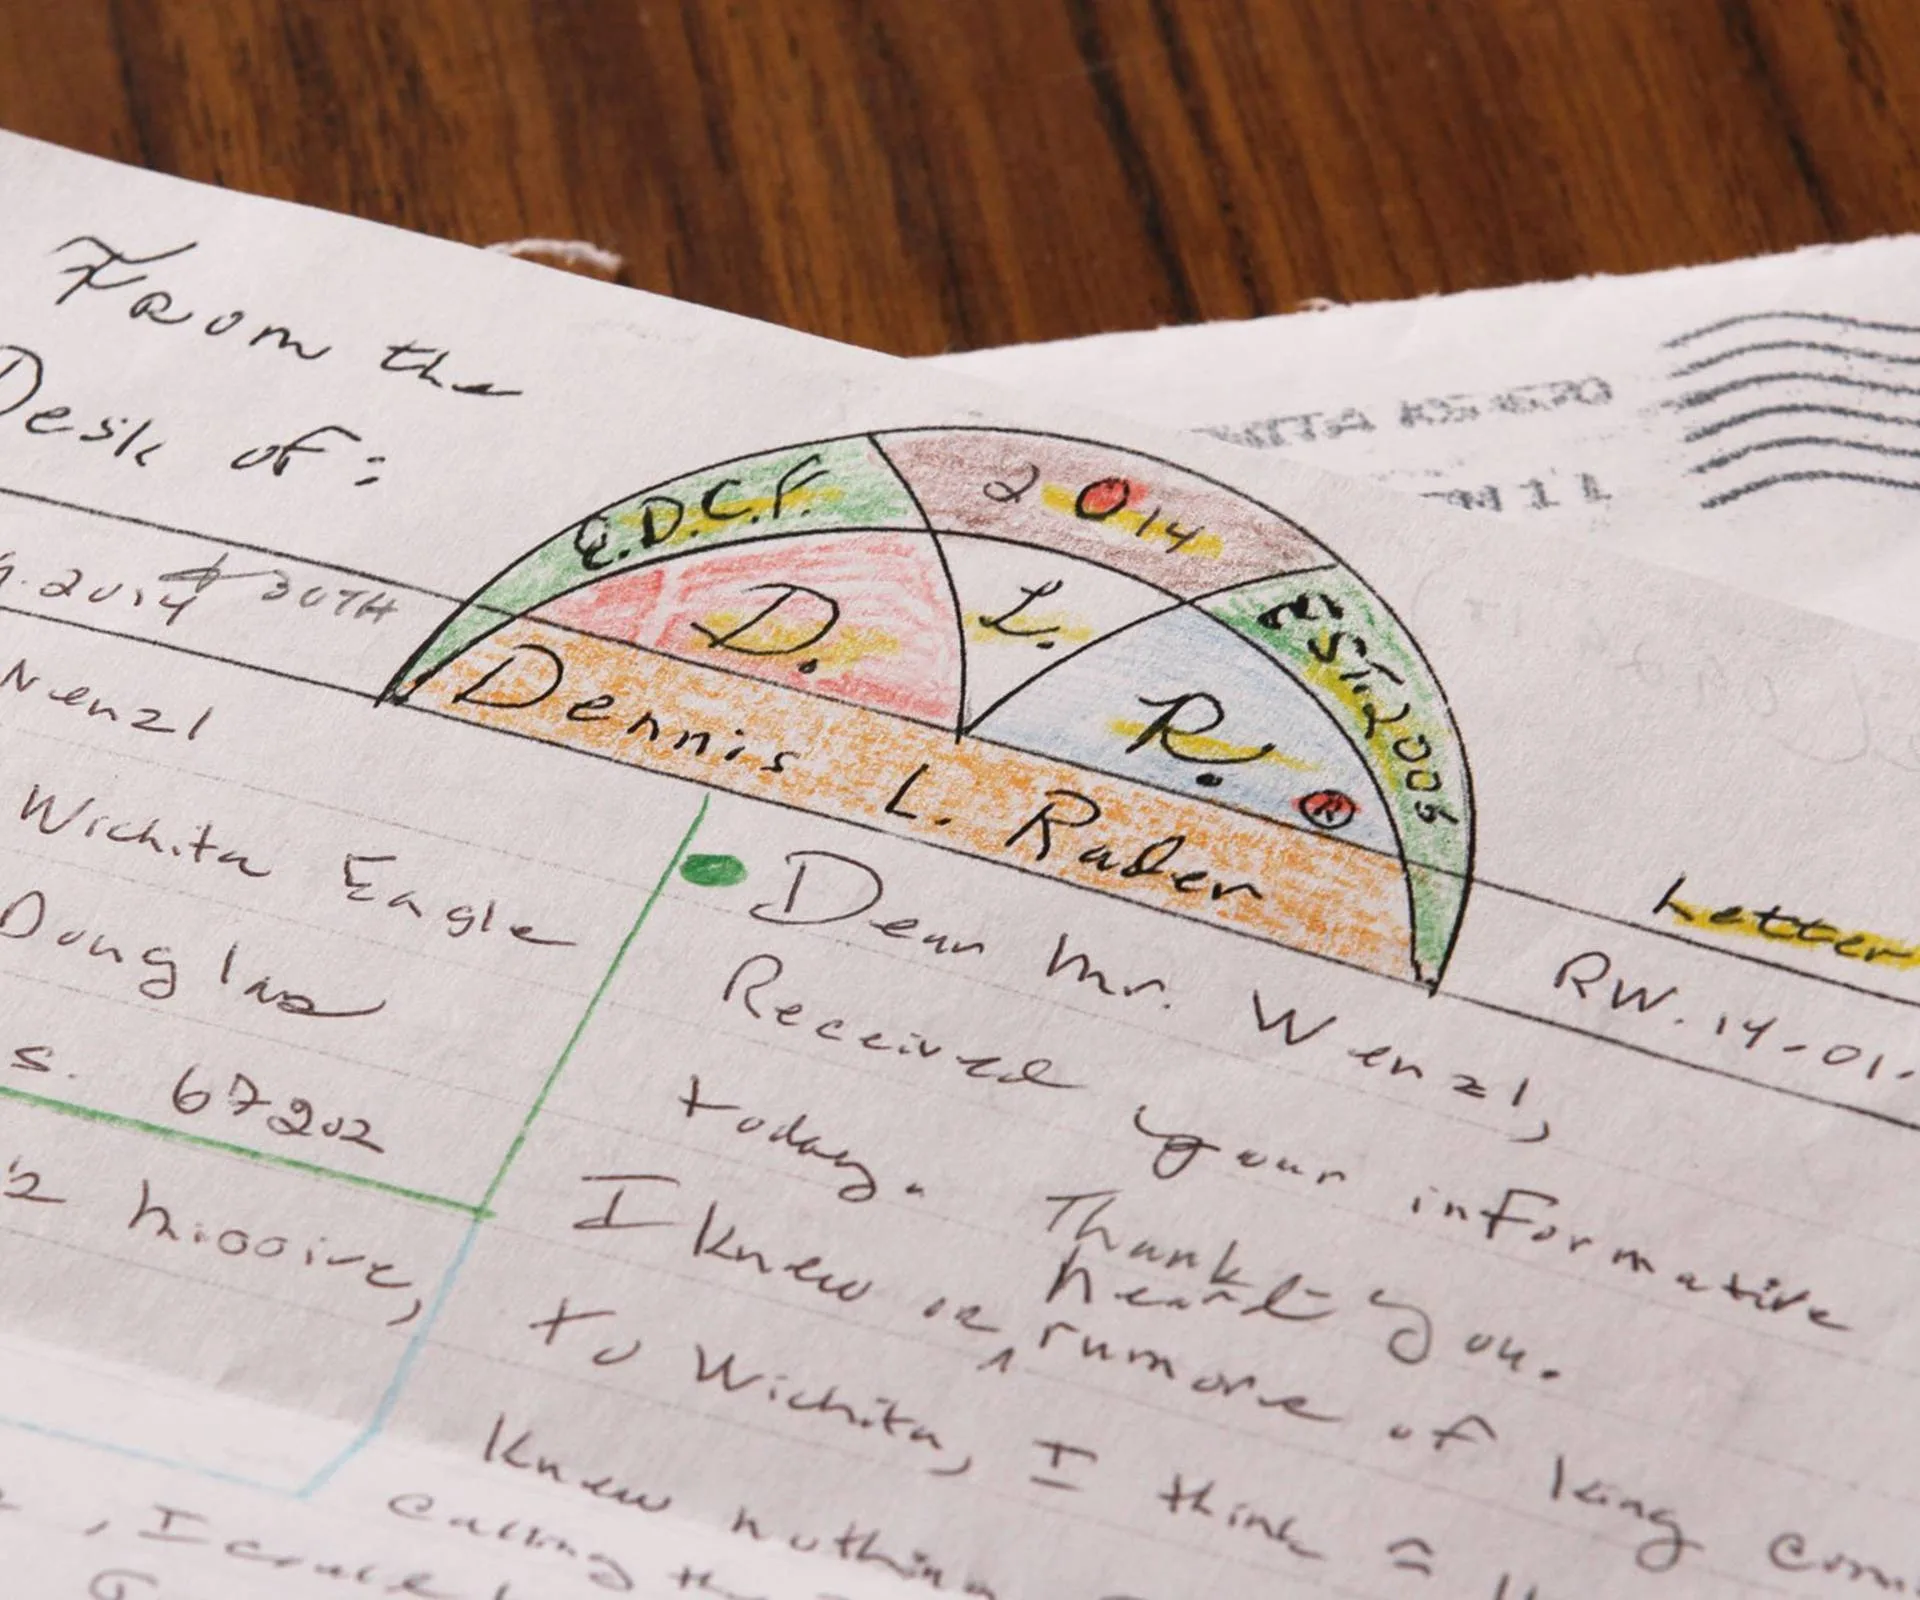 From the
Desk of:
KS 670
11
E.D.C.F.
2014
EST. 2005
D.
L.
R.
®
Dennis L. Rader
2014 30TH
Wenzl
Wichita Eagle
Douglas
s. 67202
Letter
RW. 14-01.
Dear Mr. Wenzl,
Received your informative
today. Thank you.
heard
I knew or rumors of King
to Wichita, I think
knew nothing
calling the
, I could